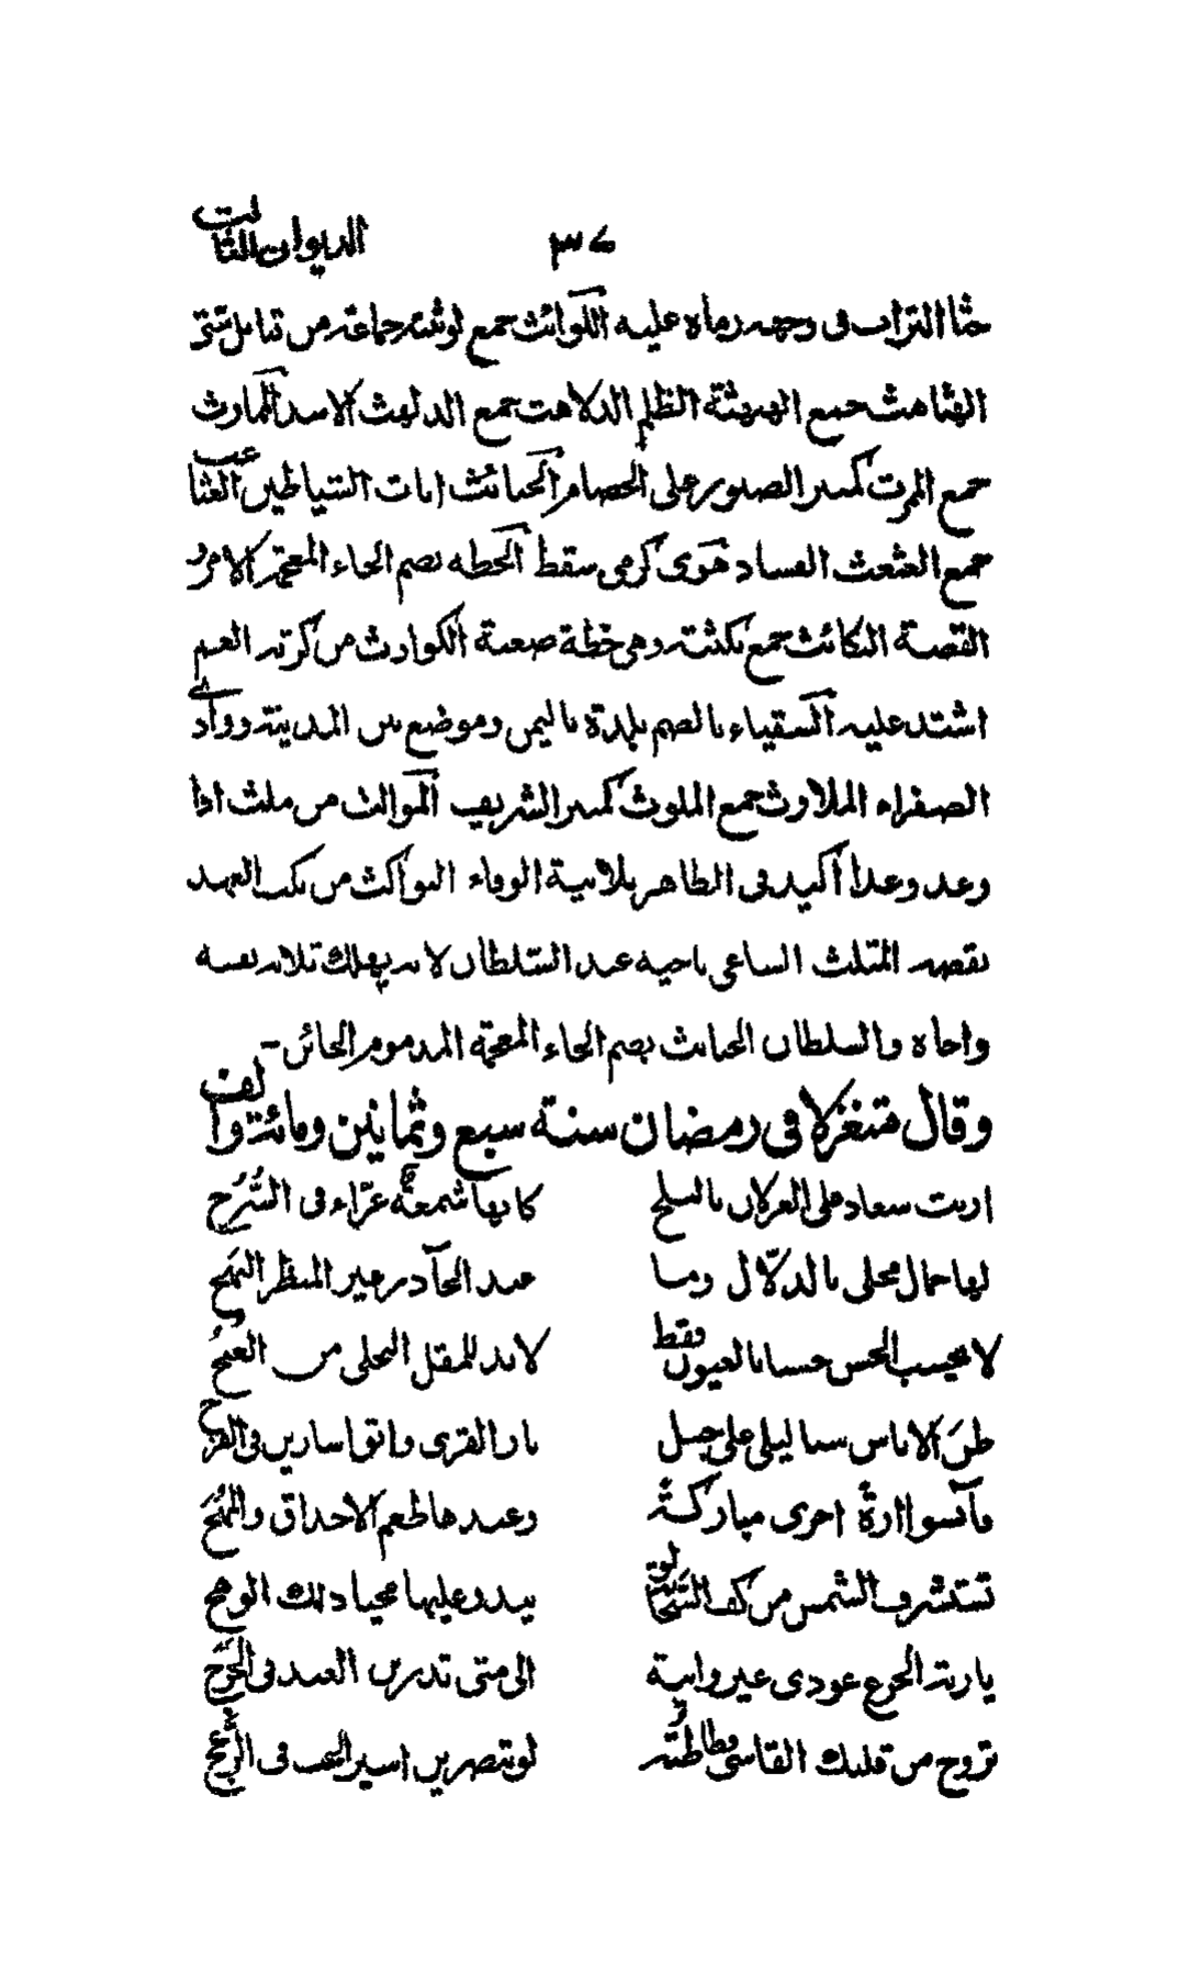 الديوان الثالث ٣٧
حثا التراب فى وجهه رماه عليه اللوائث جمع لوثته جماعة من قبائل شتى
الهثاهث جمع الهثهثة الظلم الدلاهث جمع الدلهث الاسد الممارث
جمع الممرث كمنبر الصبور على الخصام الخبائث اناث الشياطين العثاعث
جمع العثعث الفساد هوى كرمى سقط الخطه بضم الخاء المعجمة الامر و
القصة النكائث جمع نكثته وهى خطة صعبة الكوارث من كرثه الغم
اشتد عليه السقياء بالضم بلدة باليمن وموضع بين المدينة وواد
الصفراء الملاوث جمع الملوث كمنبر الشريف الموالث من ملث اذا
وعد وعدا اكيد فى الظاهر بلانية الوفاء النواكث من نكث العهد
نقضه المثلث الساعى باخيه عند السلطان لانه يهلك ثلاثه نفسه
واخاه والسلطان الخبائث بضم الخاء المعجمة المذموم الخائن-
وقال متغزلا فى رمضان سنة سبع وثمانين ومائة والف
ارنت سعاد على الغزلان بالبلج كانها شمعة غرّاء فى السُّرُج
لها جمال محلى بالدلّال وما عند الجآذر غير المنظر السمج
لا يحسب الحسن حسنا بالعيون فقط لابد للمقل النجلى من الغنج
ظن الاناس سنا ليلى على جبل نار القرى وباتوا سارين فى الفرج
فآنسوا نارةً اخرى مباركةً وعندها طعم الاحداق والمُهَج
تستشرف الشمس من كف الشحا يبدو عليها محيا ذلك الوهج
يا ربة الجزع عودى غير وانية الى متى تذرين العبد فى الحَرَج
تروح من قلبك القاسى لو تبصرين اسير الحب فى